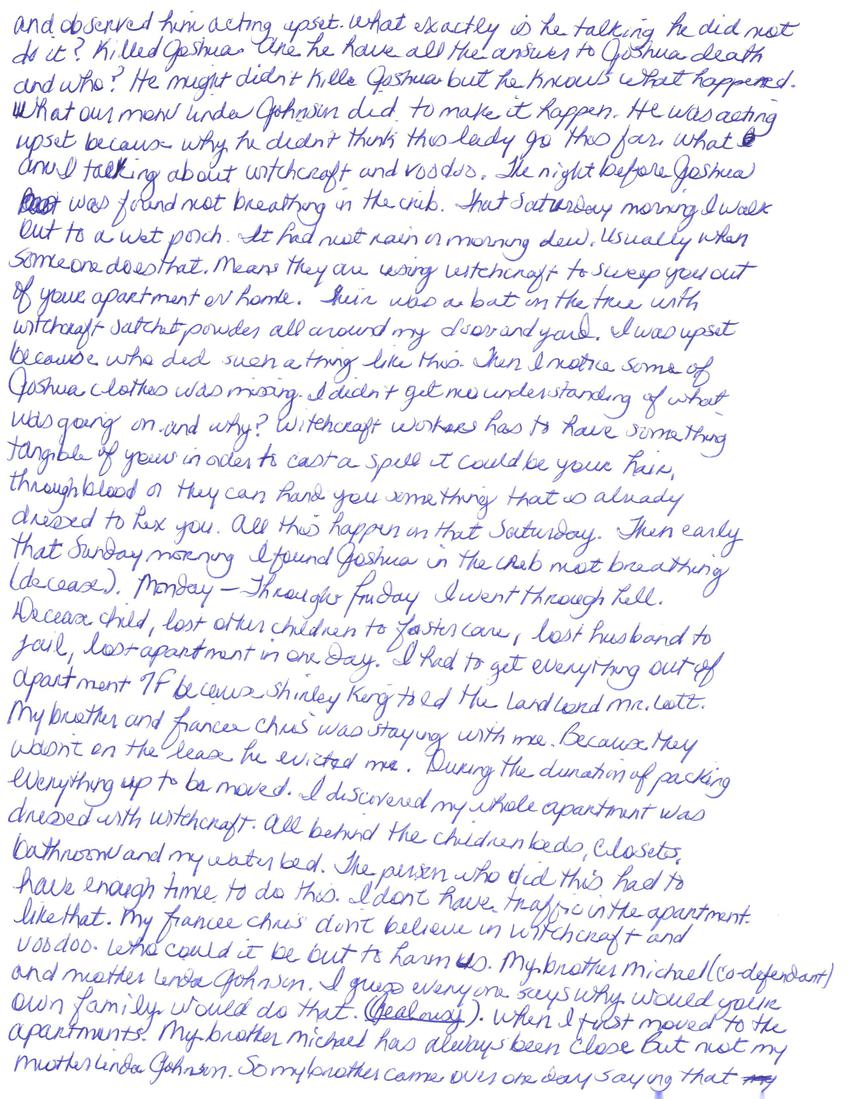 and observed him acting upset. What exactly is he talking he did not
do it? Killed Joshua. Are he have all the answer to Joshua death
and who? He might didn't kille Joshua but he knows what happened.
What our mom Linda Johnson did to make it happen. He was acting
upset because why he didn't think this lady go this far. What
am I talking about witchcraft and voodoo. The night before Joshua
was found not breathing in the crib. That Saturday morning I walk
out to a wet porch. It had not rain or morning dew. Usually when
someone does that. Means they are using witchcraft to sweep you out
of your apartment or home. Their was a bat in the tree with
witchcraft satchet powders all around my door and yard. I was upset
because who did such a thing like this. Then I notice some of
Joshua clothes was missing. I didn't get no understanding of what
was going on and why? Witchcraft workers has to have something
tangible of yours in order to cast a spell it could be your hair,
through blood or they can hand you something that is already
dressed to hex you. All this happen on that Saturday. Then early
that Sunday morning I found Joshua in the crib not breathing
(decease). Monday - Through Friday I went through hell.
Decease child, lost other children to foster care, lost husband to
jail, lost apartment in one day. I had to get everything out of
apartment 7F because Shirley King told the Landlord Mr. Lott.
My brother and fiancee Chris was staying with me. Because they
wasn't on the lease he evicted me. During the duration of packing
everything up to be moved. I discovered my whole apartment was
dressed with witchcraft. All behind the children beds, closets,
bathroom and my water bed. The person who did this had to
have enough time to do this. I don't have traffic in the apartment
like that. My fiancee Chris don't believe in witchcraft and
voodoo. Who could it be but to harm us. My brother Michael (co-defendant)
and mother Linda Johnson. I guess everyone says why would your
own family would do that. (Jealousy). When I first moved to the
apartments. My brother Michael has always been close but not my
mother Linda Johnson. So my brother came over one day saying that